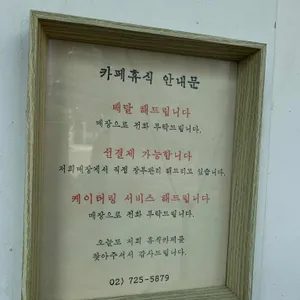 카페휴식 안내문
배달 해드립니다
매장으로 전화 부탁드립니다.
선결제 가능합니다
저희매장에서 직접 장부관리 해드리고있습니다.
케이터링 서비스 해드립니다
매장으로 전화 부탁드립니다.
오늘도 저희 휴식카페를
찾아주셔서 감사드립니다.
02) 725-5879